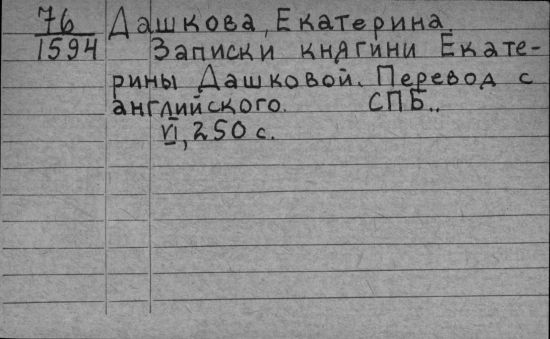 76 Дашкова, Екатерина
1594 Записки княгини Екате-
рины Дашковой. Перевод с
английского. СПБ..
VI, 250 с.